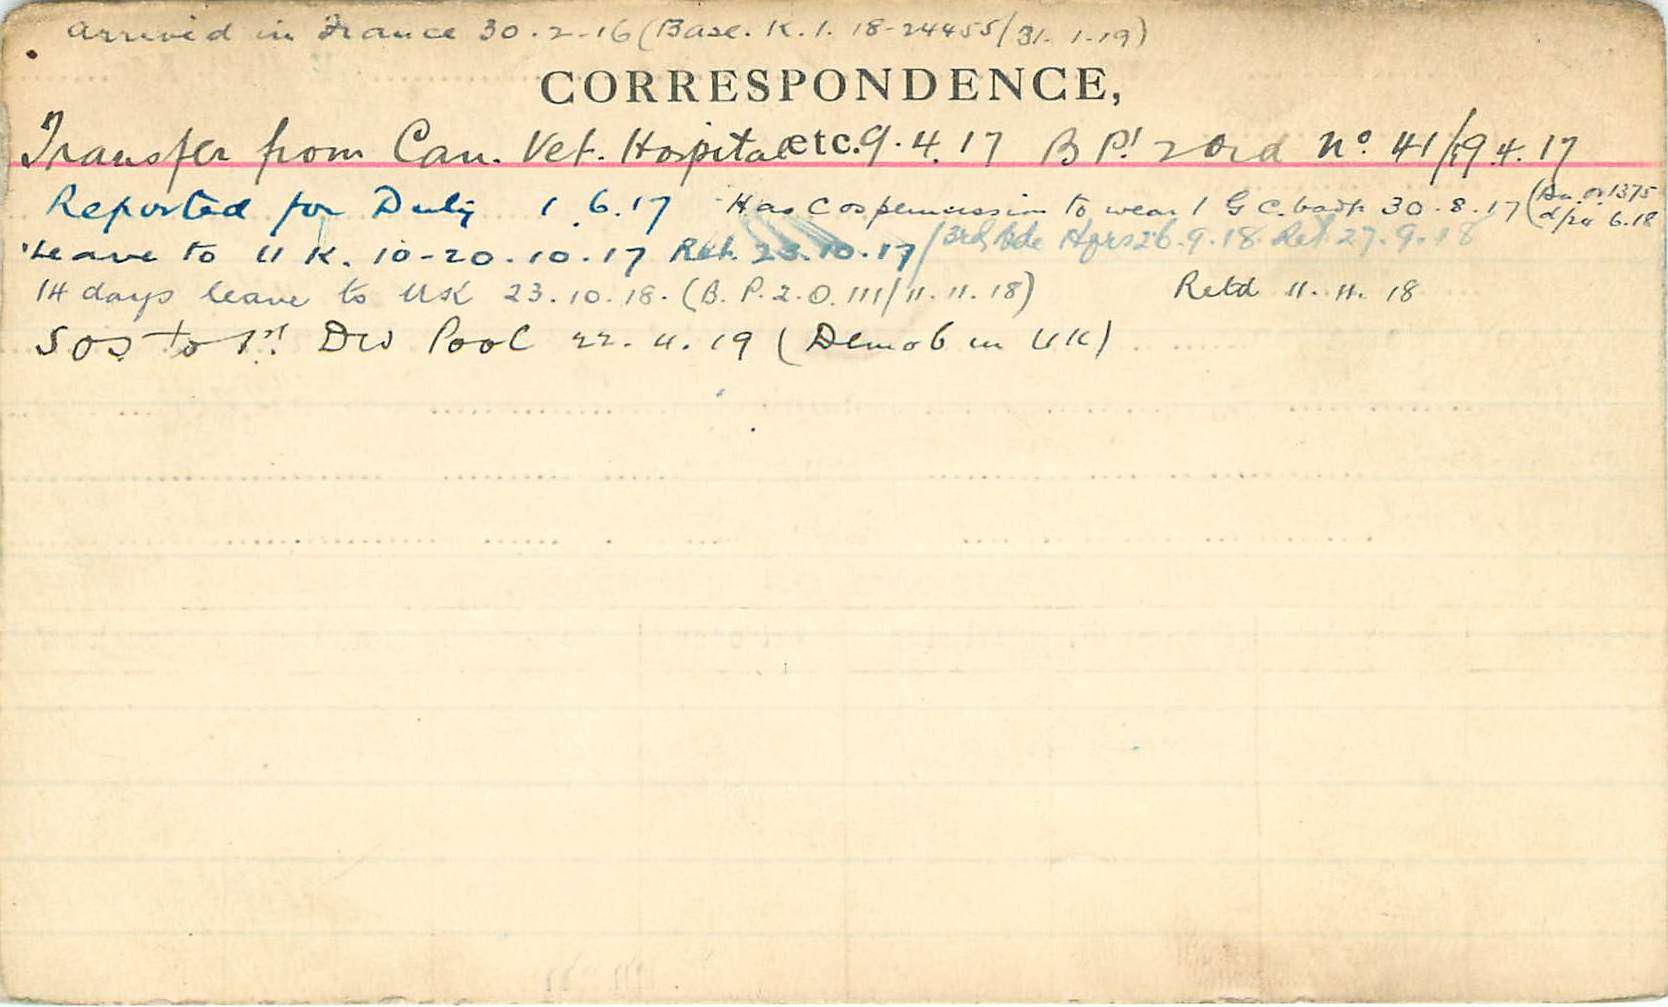 Arrived in France 30.2-16 (Base. K. 1. 18-24455/31. 1.19)
CORRESPONDENCE,
etc.
Transfer from Can. Vet. Hospital 9.4.17 B Pt 2 Ord No. 41/19.4.17
Reported for Duty 1.6.17 Has C Os permission to wear 1 G C. badge 30.8.17 (An. Or 1375
d/24 6.18
Leave to U K. 10-20.10.17 Ret. 23.10.17 / 3rd Bde Hqrs 26.9.18 Ret 27.9.18
14 days leave to UK 23.10.18. (B. P. 2. O. 111/11.11.18) Retd 11.11.18
SOS to 1st DW Pool 22.4.19 (Demob in UK)